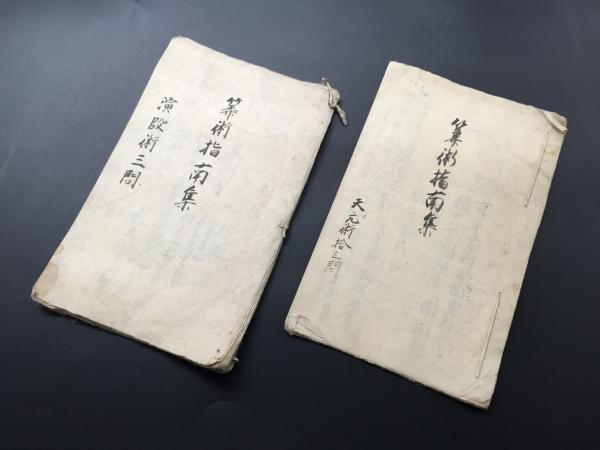 算術指南集
演段術三問
算術指南集
天元術拾之問